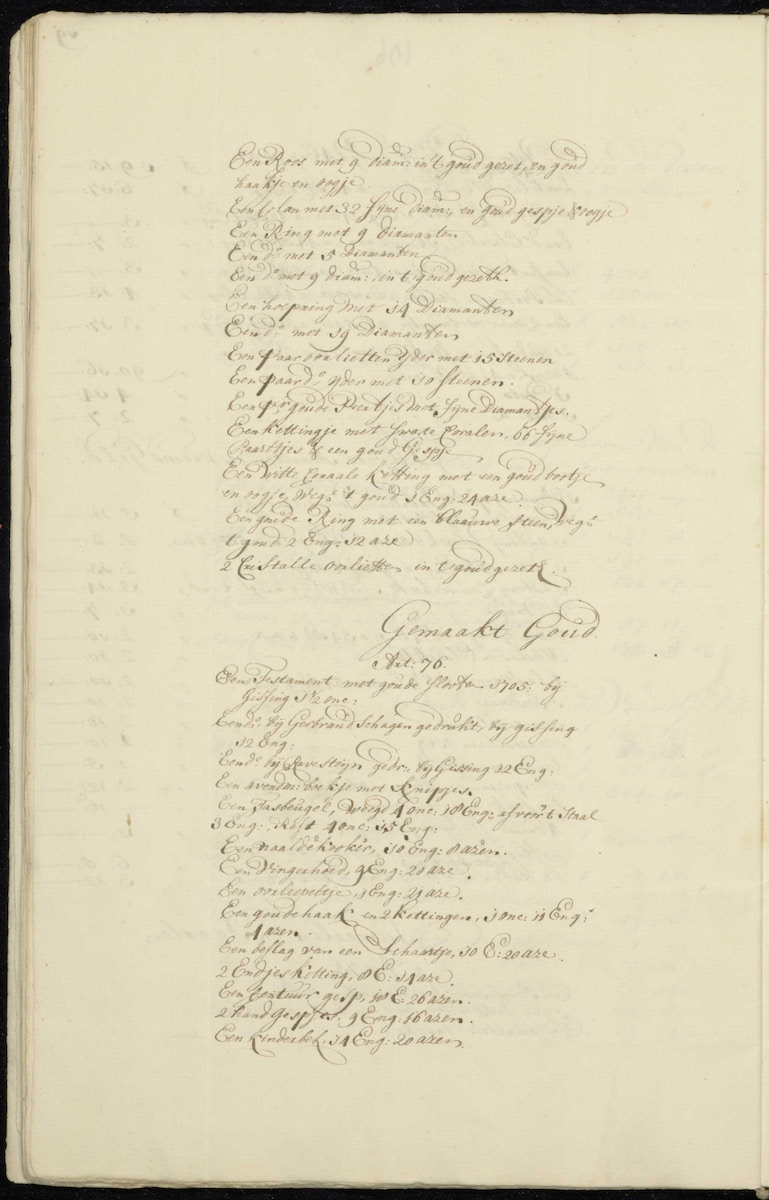 Een Roos met 9 diam: in 't goud gezet, en goud
haakje en oogje.
Een Colan met 32 fyne diam:, en goud gespje & oogje
Een Ring met 9 diamanten
Een do met 5 Diamanten
Een do met 9 diam:, in 't goud gezeth.
Een hoepring met 14 Diamanten
Een do met 19 Diamanten
Een paar oorlietten yder met 15 Steenen
Een paar do yder met 10 Steenen.
Een pr goude Peertjes met fyne Diamantjes.
Een kettingje met swate Coralen, 66 fyne
Paarltjes & een goud Gespje
Een witte Coraale ketting met een goud bootje
en oogje, wegt 't goud 1 Eng: 24 aze
Een goude Ring met een blaauwe steen, wegt
't goud 2 Eng: 12 aze
2 Cristalle oorlietten in 't goud gezeth.
Gemaakt Goud.
Art: 76.
Een Testament met goude slooten 1705. bij
gissing 1 1/2 onc:
Een do bij Gerbrand Schagen gedrukt, bij gissing
12 Eng:
Een do bij Ravesteyn gedr:, bij Gissing 12 Eng:
Een avendm: boekje met knipjes.
Een Tasbeugel, weegt 4 onc: 18 Eng:, af voor 't Staal
3 Eng:, Rest 4 onc: 15 Eng:
Een naaldekoker, 10 Eng: 8 azen.
Een Vingerhoed, 9 Eng: 20 aze.
Een oorleepeltje, 1 Eng: 21 aze.
Een goude haak en 2 kettingen, 1 onc: 11 Eng:
4 azen.
Een beslag van een Schaartje, 10 E: 20 aze.
2 Endjes ketting, 8 E: 14 aze.
Een Centuur gesp, 18 E: 26 azen.
2 hand Gespjes, 9 Eng: 16 azen.
Een kinderbel. 14 Eng: 20 azen.